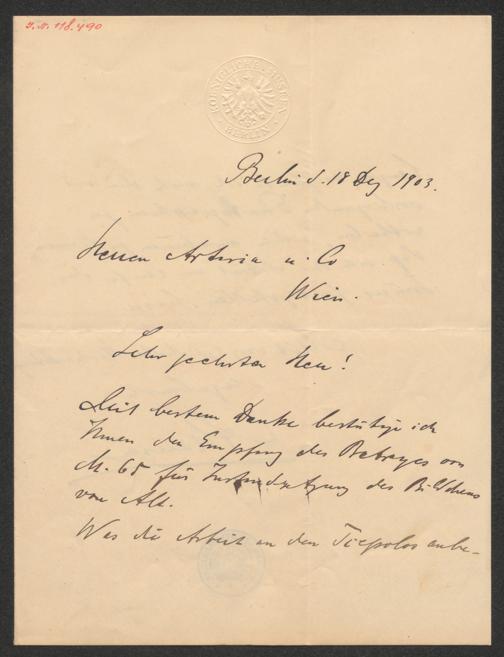 J.N. 118.490
KOENIGLICHE MUSEEN
BERLIN
Berlin d. 18 Dez 1903.
Herren Artaria u. Co
Wien.
Sehr geehrter Herr!
Mit bestem Danke bestätige ich
Ihnen den Empfang des Betrages von
M. 65 für Instandsetzung des Bildchens
von Alt.
Was die Arbeit an den Tiepolos anbe-